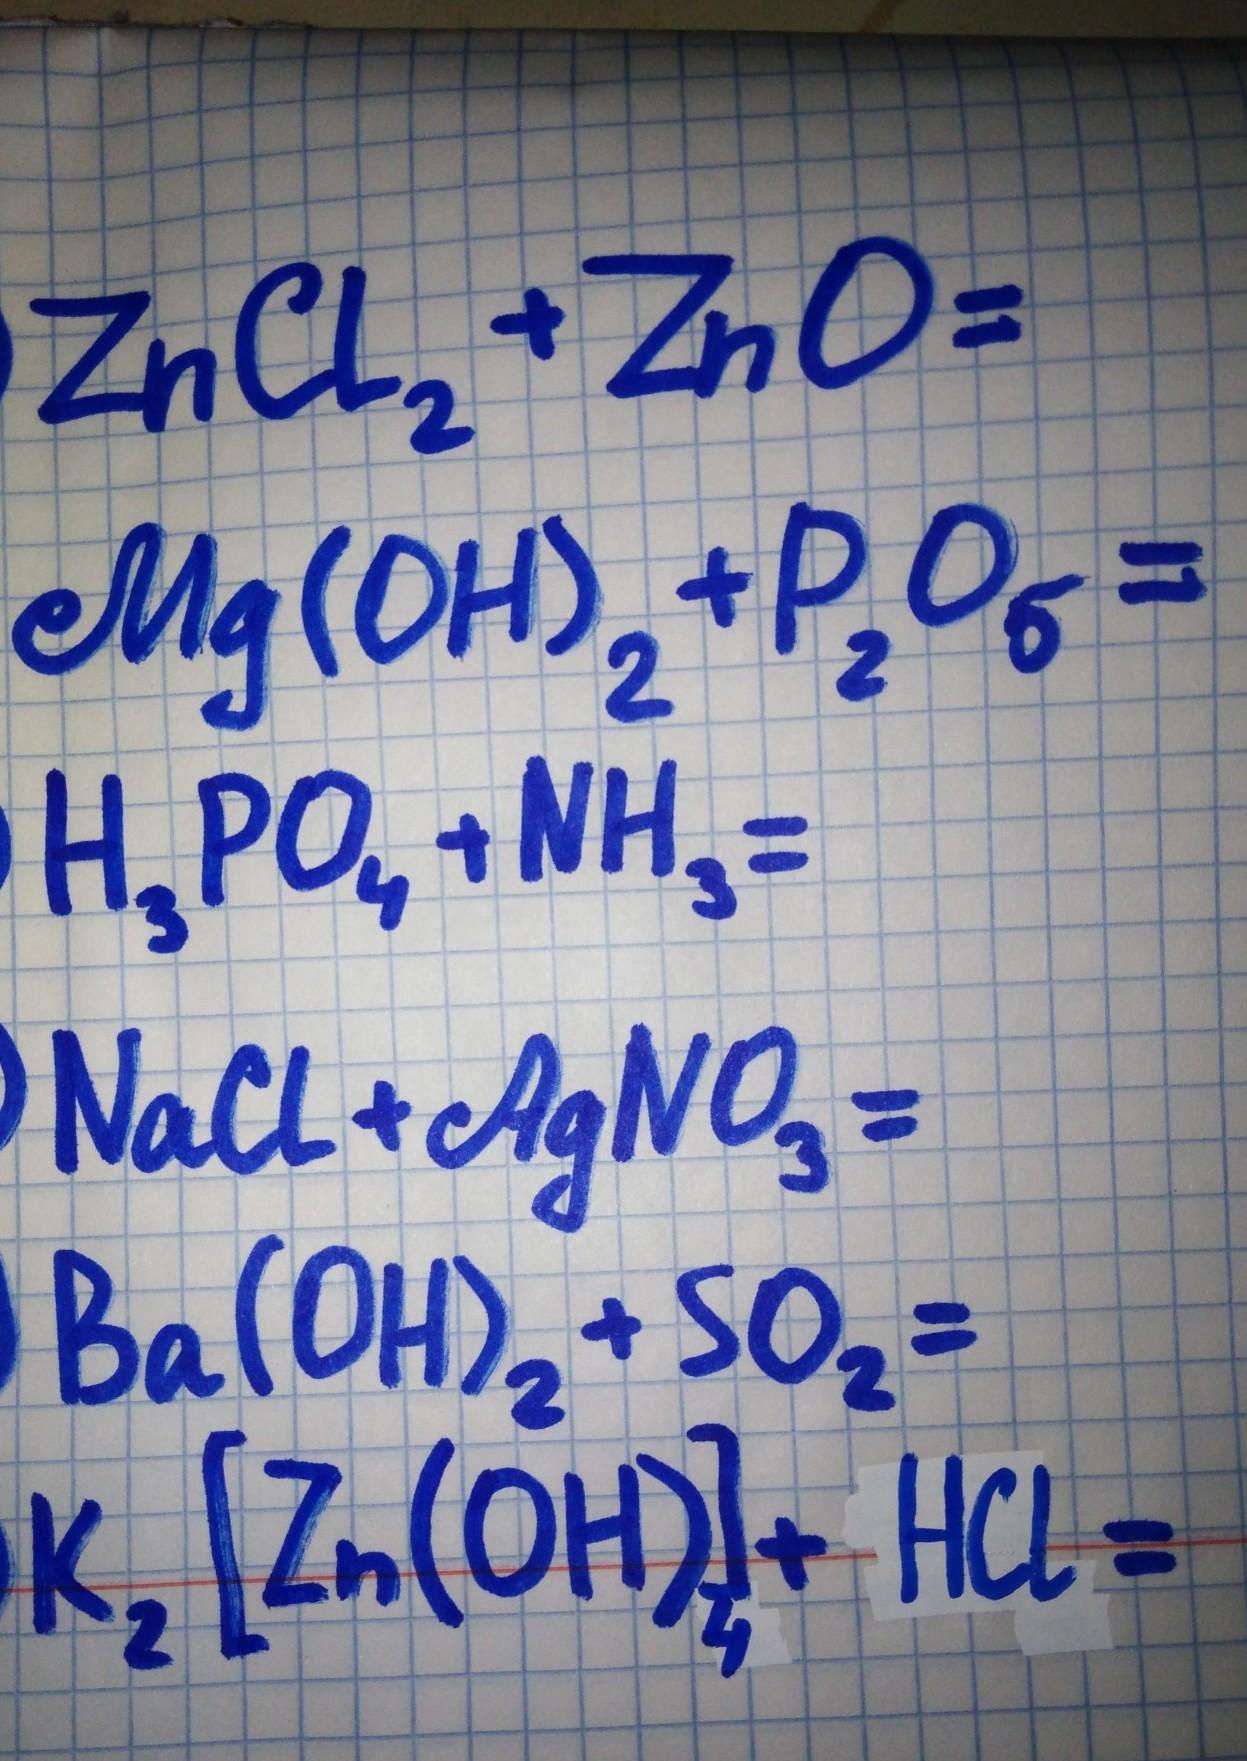 ) ZnCl₂ + ZnO =
Mg(OH)₂ + P₂O₅ =
) H₃PO₄ + NH₃ =
) NaCl + AgNO₃ =
) Ba(OH)₂ + SO₂ =
) K₂[Zn(OH)₄] + HCl =